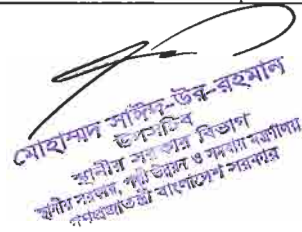 মোহাম্মাদ সাঈদ-উর-রহমান
উপসচিব
স্থানীয় সরকার বিভাগ
স্থানীয় সরকার, পল্লী উন্নয়ন ও সমবায় মন্ত্রণালয়
গণপ্রজাতন্ত্রী বাংলাদেশ সরকার